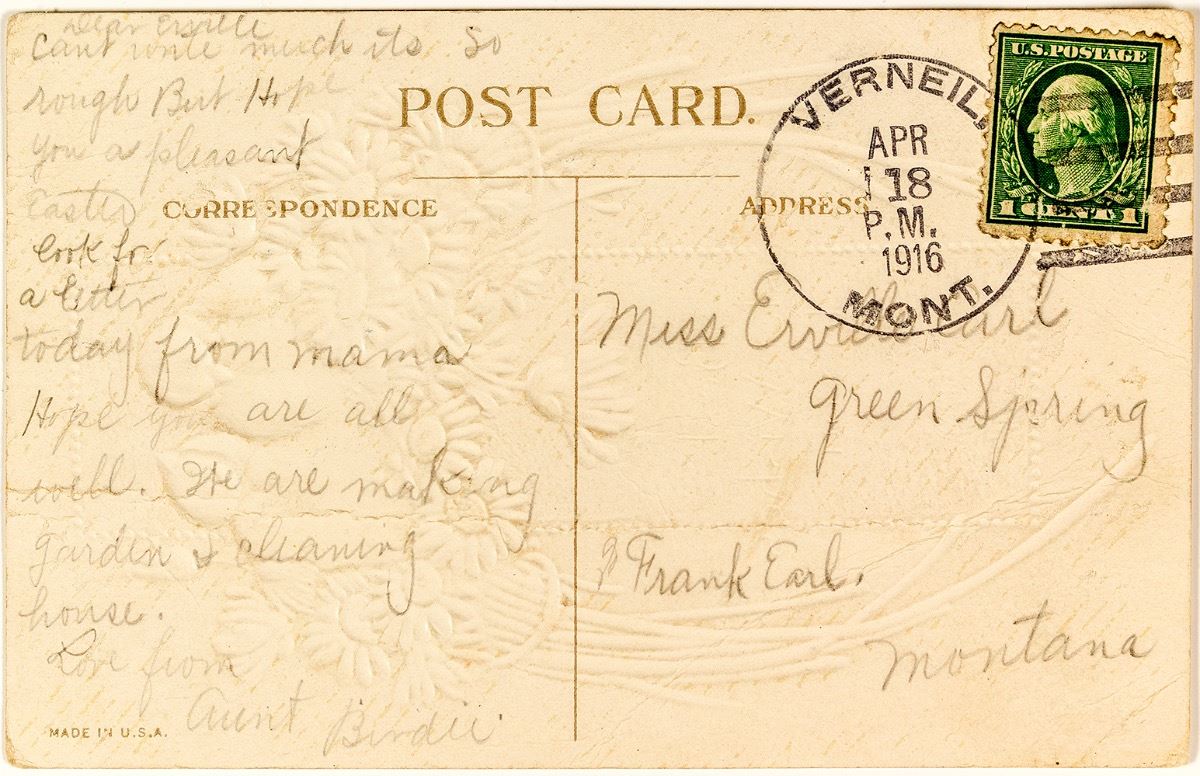 Dear Erville
Cant write much its so
rough But Hope
you a pleasant
Easter
look for
a letter
today from mama
Hope you are all
well. We are making
garden & cleaning
house.
Love from
Aunt Birdie
MADE IN U.S.A.
POST CARD.
CORRESPONDENCE
ADDRESS
VERNEIL,
APR
18
P.M.
1916
MONT.
U.S. POSTAGE
1 CENT 1
Miss Erville Earl
Green Spring
Frank Earl.
Montana